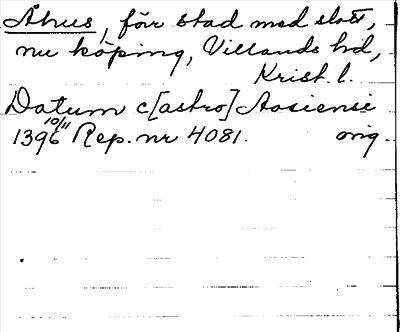 Åhus, förr stad med slott,
nu köping, Villands hd,
Krist. l.
Datum c[astro] Aosiensi
1396 10/11 Rep. nr 4081. orig.